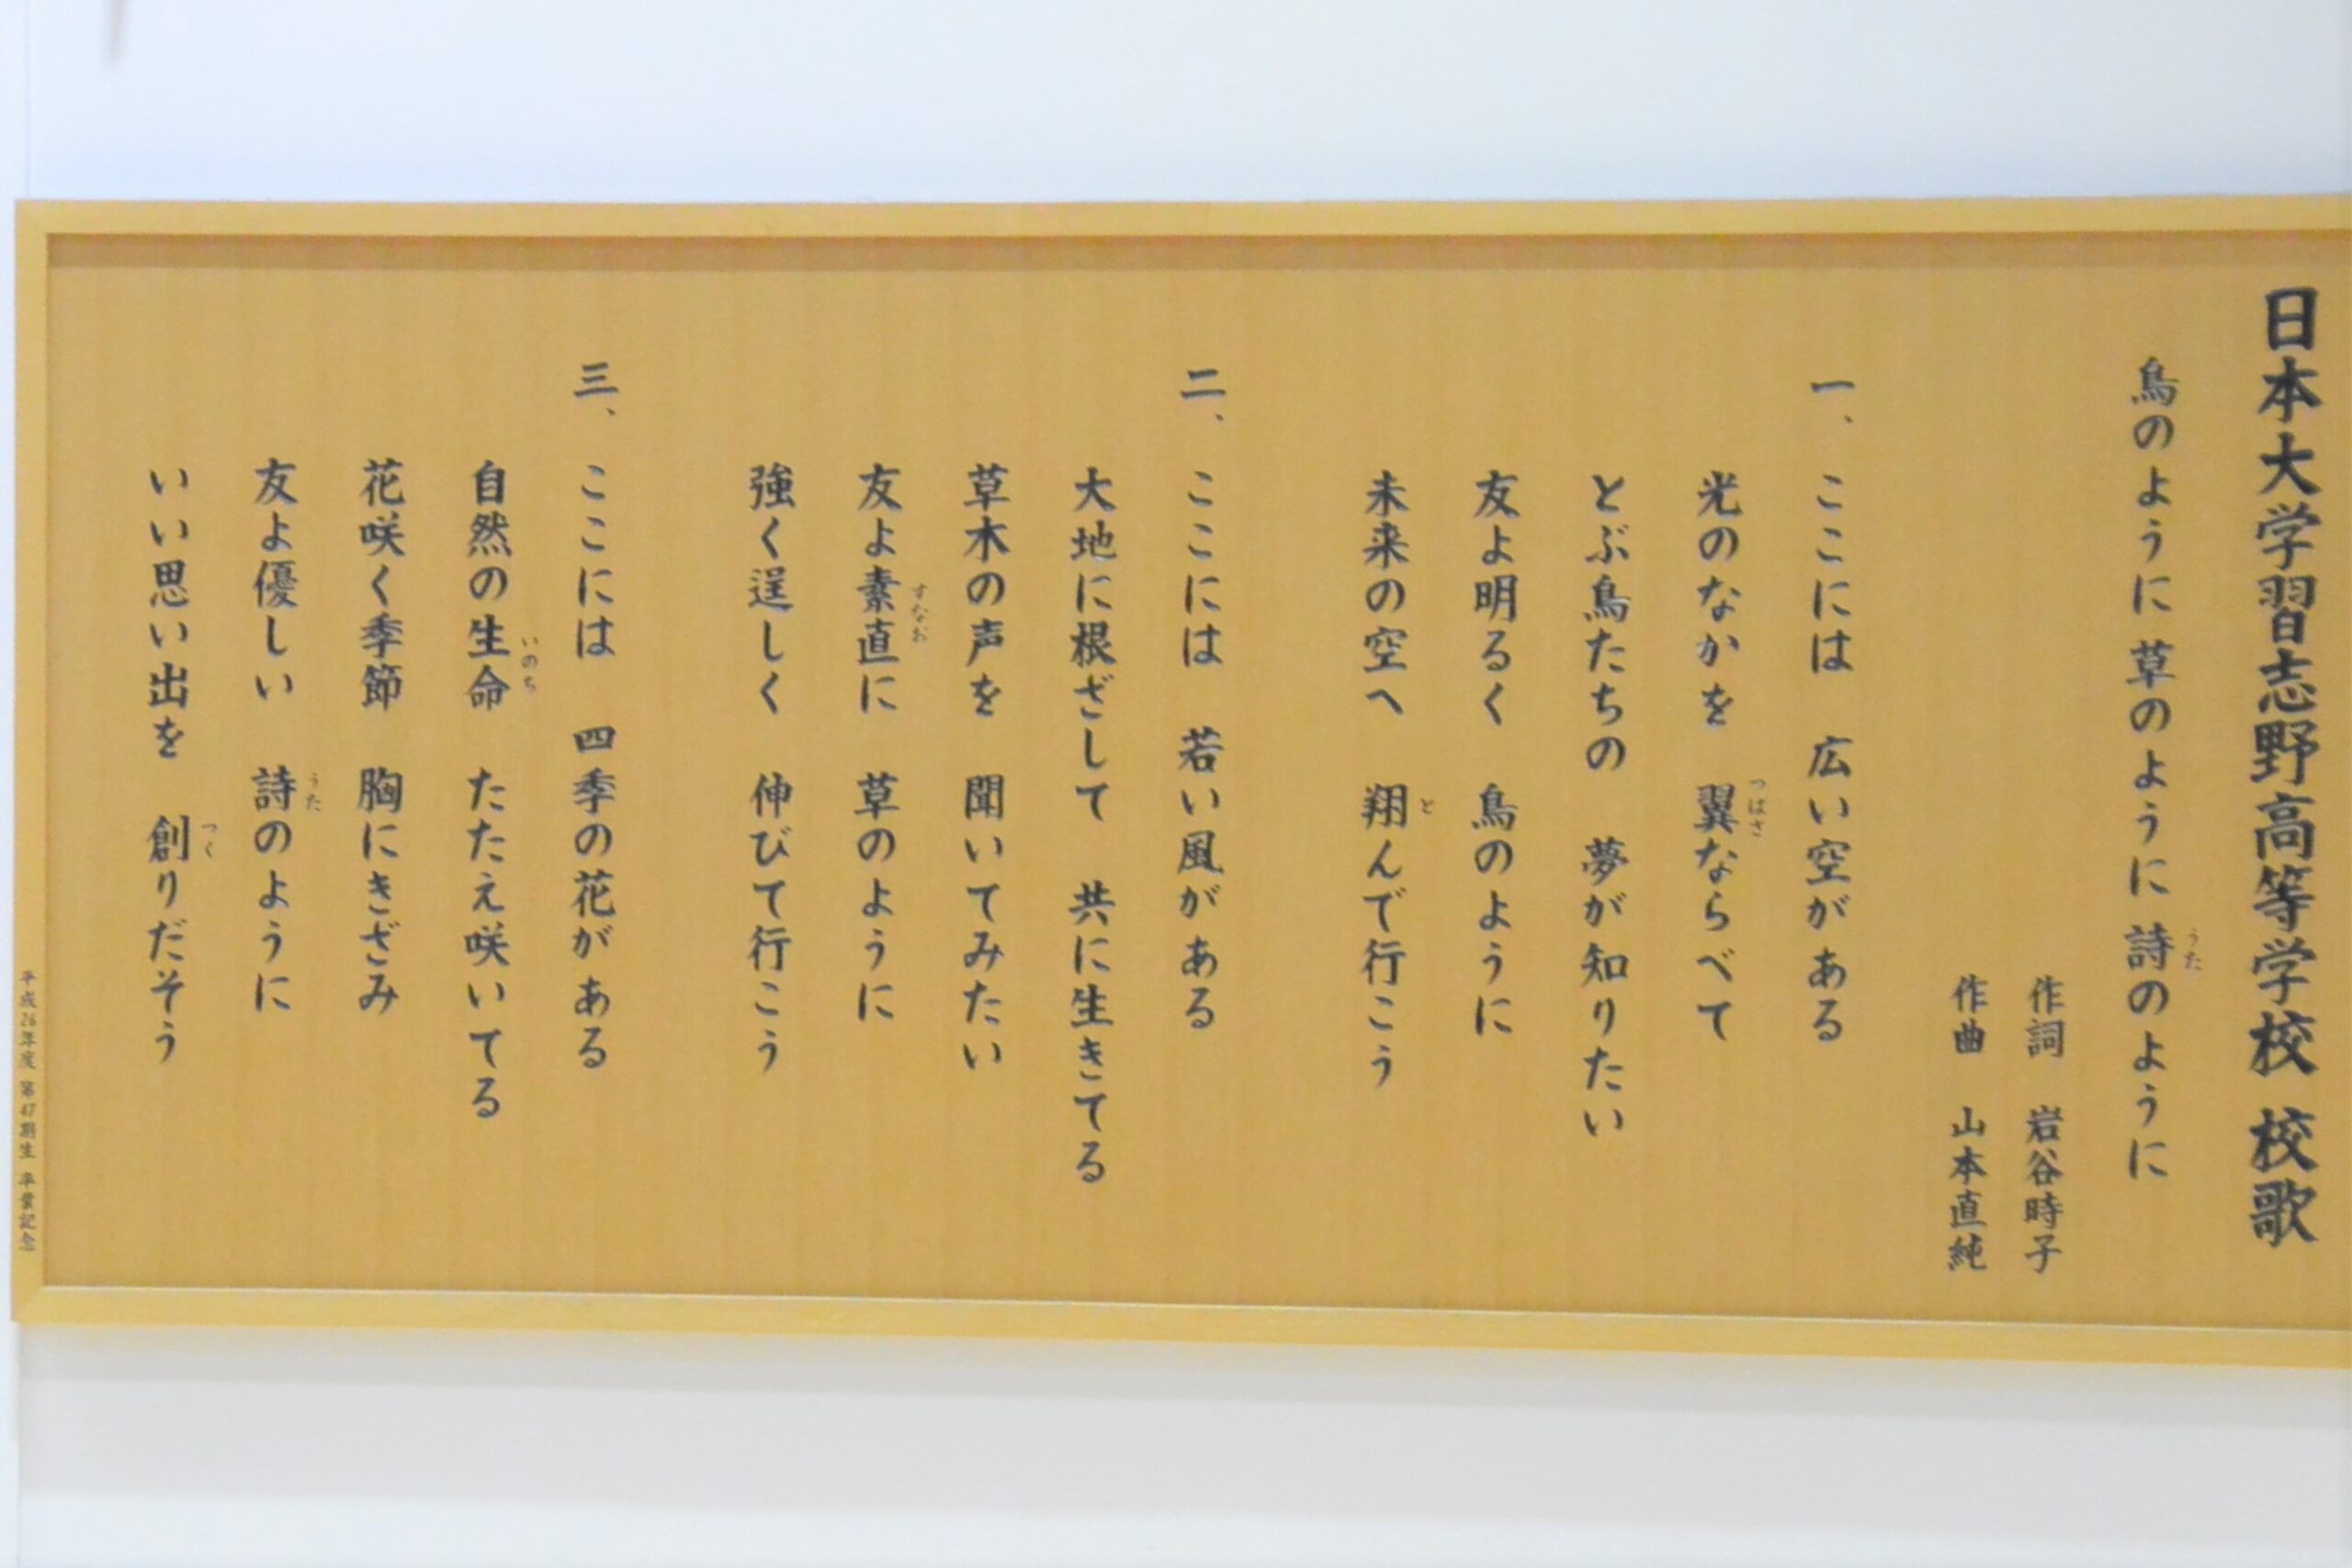 日本大学習志野高等学校 校歌
鳥のように 草のように 詩のように
うた
作詞 岩谷時子
作曲 山本直純
一、ここには 広い空がある
光のなかを 翼ならべて
つばさ
とぶ鳥たちの 夢が知りたい
友よ明るく 鳥のように
未来の空へ 翔んで行こう
と
二、ここには 若い風がある
大地に根ざして 共に生きてる
草木の声を 聞いてみたい
友よ素直に 草のように
すなお
強く逞しく 伸びて行こう
三、ここには 四季の花がある
自然の生命 たたえ咲いてる
いのち
花咲く季節 胸にきざみ
友よ優しい 詩のように
うた
いい思い出を 創りだそう
つく
平成26年度 第47期生 卒業記念